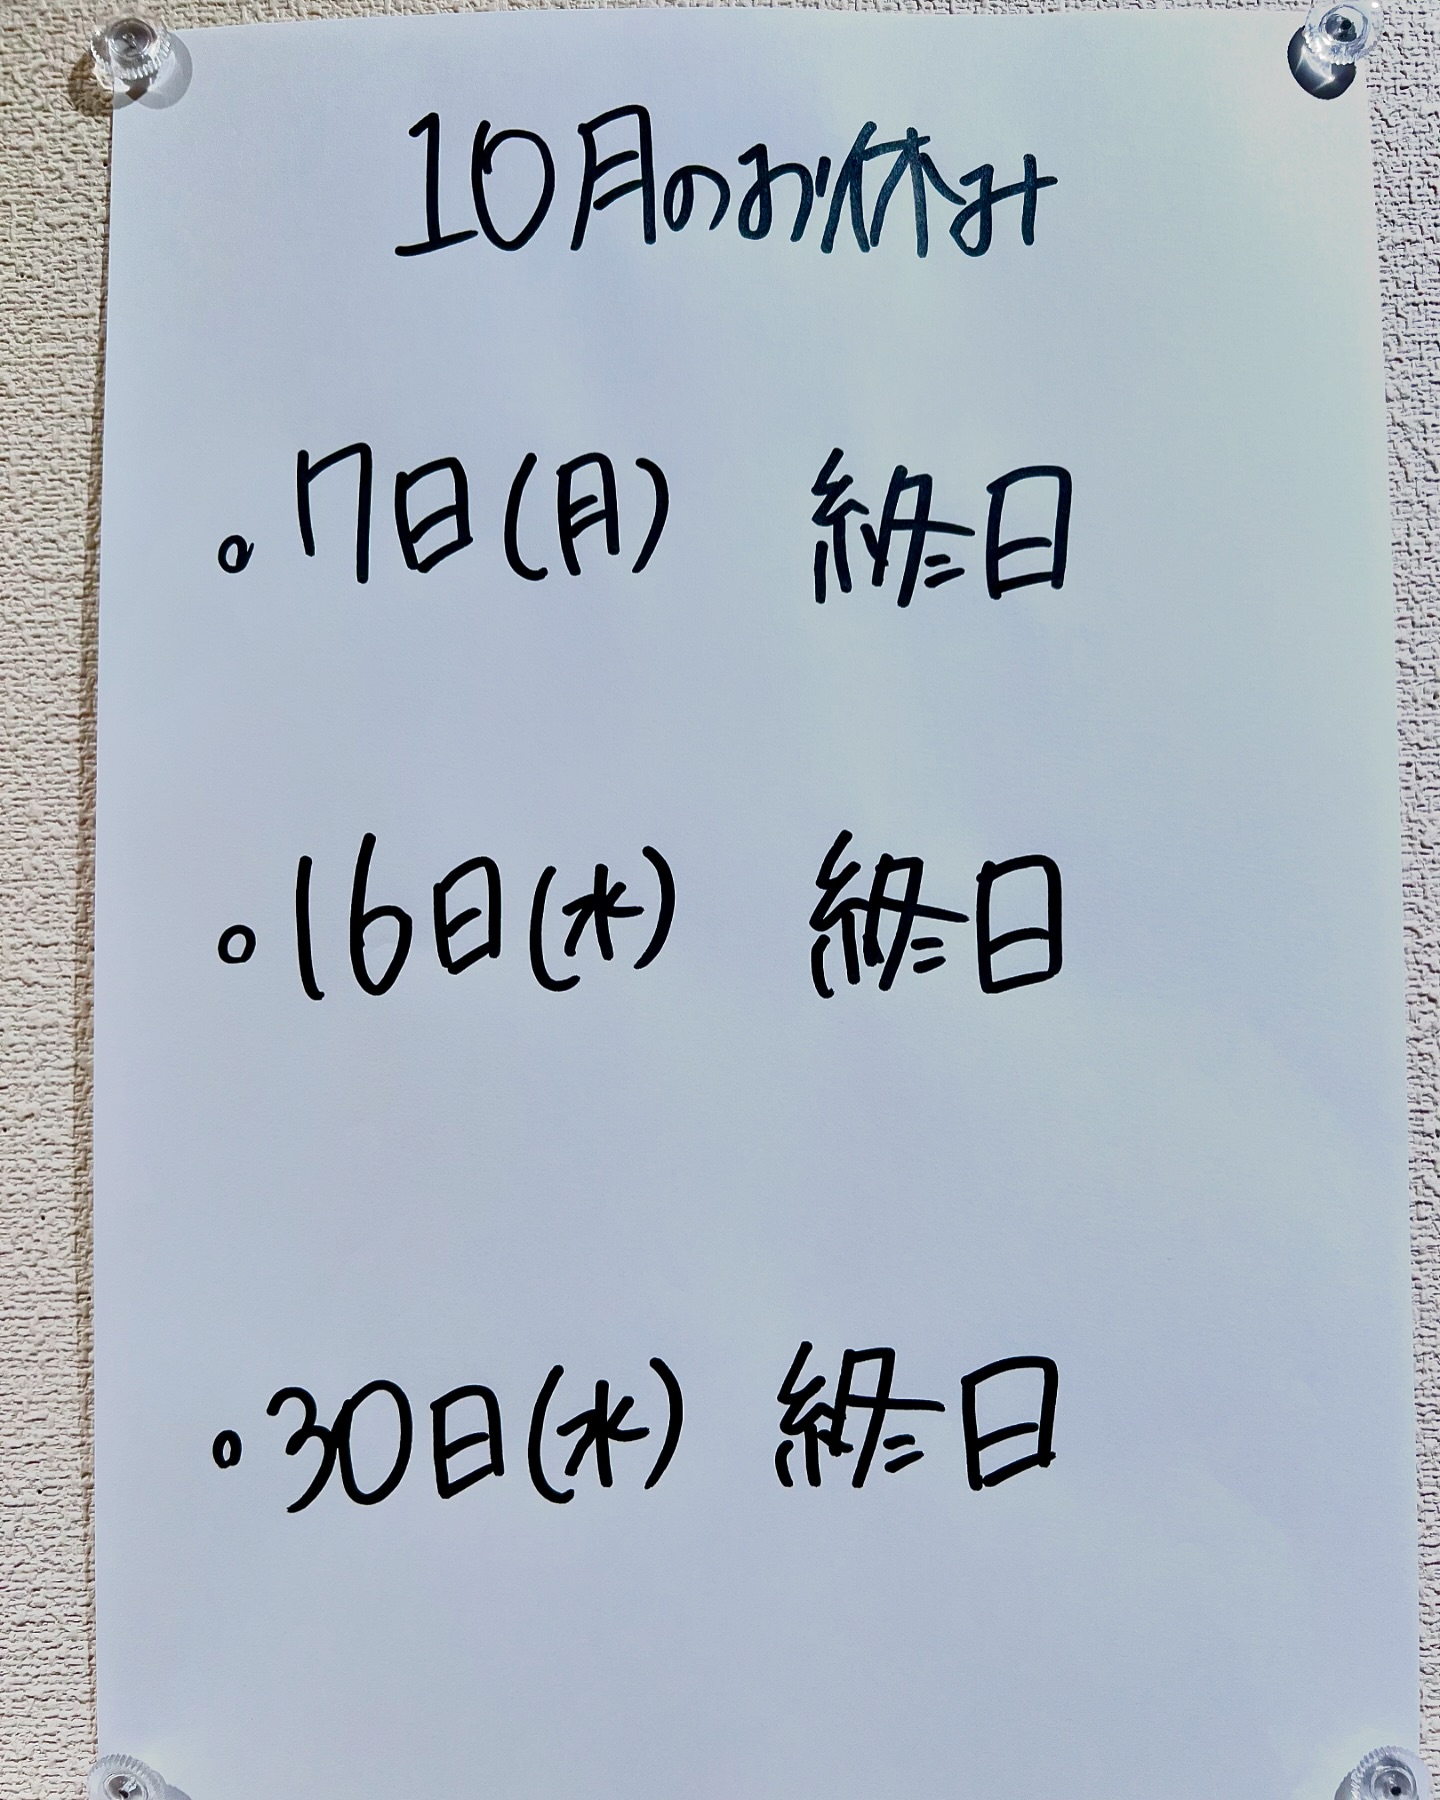 10月のお休み
。7日(月) 終日
。16日(水) 終日
。30日(水) 終日